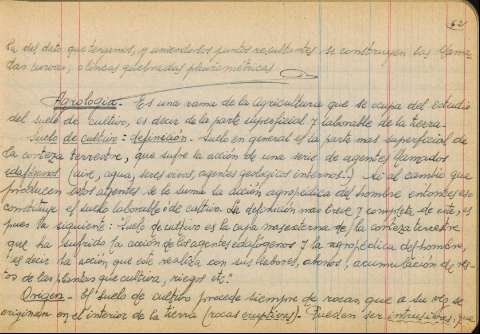 62
la del dato que tenemos, y uniendo los puntos resultantes se construyen las llama-
das curvas, o líneas quebradas pluviométricas
Agrología.- Es una rama de la agricultura que se ocupa del estudio
del suelo de cultivo, es decir de la parte superficial y laborable de la tierra.-
Suelo de cultivo: definición.- Suelo en general es la parte mas superficial de
la corteza terrestre, que sufre la acción de una serie de agentes llamados
edafógenos (aire, agua, seres vivos, agentes geológicos internos..) Si al cambio que
producen estos agentes se le suma la acción agropédica del hombre entonces se
constituye el suelo laborable ó de cultivo. La definición mas breve y completa de este, es
pues la siguiente: "Suelo de cultivo es la capa mas externa de la corteza terrestre
que ha sufrido la acción de los agentes edafógenos y la agropédica del hombre,
es decir la acción que este realiza con sus labores, abonos, acumulación de res-
tos de las plantas que cultiva, riegos etc."
Origen.- El suelo de cultivo procede siempre de rocas, que a su vez se
originan en el interior de la tierra (rocas eruptivas). Pueden ser intrusivas, que